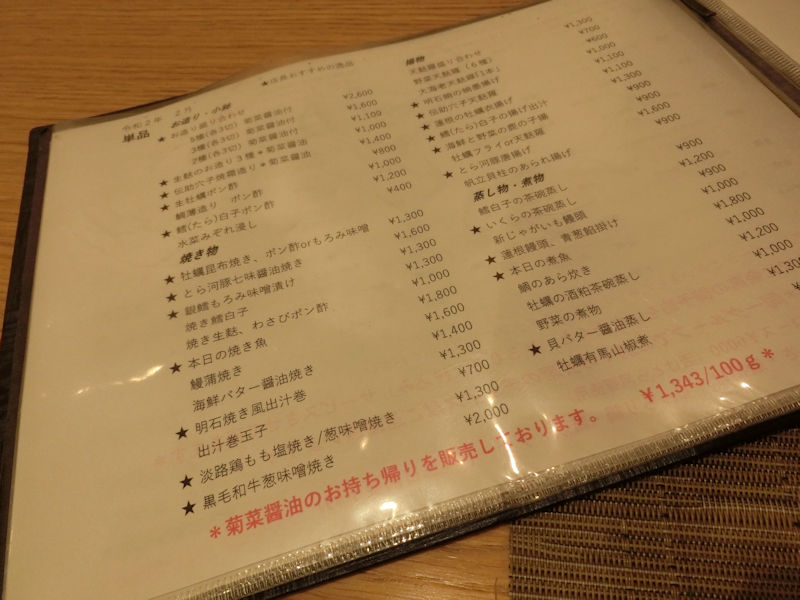 ★店長おすすめの逸品
令和2年 2月
単品
お造り・小鉢
★お造り盛り合わせ
5種(各3切) 菊菜醤油付 ¥2,600
3種(各3切) 菊菜醤油付 ¥1,600
2種(各3切) 菊菜醤油付 ¥1,100
★生麩のお造り3種*菊菜醤油 ¥1,000
★伝助穴子焼霜造り*菊菜醤油 ¥1,400
★生牡蠣ポン酢 ¥800
鯛薄造り ポン酢 ¥1,000
★鱈(たら)白子ポン酢 ¥1,200
水菜みぞれ浸し ¥400
焼き物
★牡蠣昆布焼き、ポン酢orもろみ味噌 ¥1,300
★とら河豚七味醤油焼き ¥1,600
★銀鱈もろみ味噌漬け ¥1,300
焼き鱈白子 ¥1,300
焼き生麩、わさびポン酢 ¥1,000
★本日の焼き魚 ¥1,800
鰻蒲焼き ¥1,600
海鮮バター醤油焼き ¥1,400
★明石焼き風出汁巻 ¥1,300
出汁巻玉子 ¥700
★淡路鶏もも塩焼き/葱味噌焼き ¥1,300
★黒毛和牛葱味噌焼き ¥2,000
揚物
天麩羅盛り合わせ ¥1,300
野菜天麩羅(6種) ¥700
大海老天麩羅「1本」 ¥600
★明石鯛の納豆揚げ ¥1,000
★伝助穴子天麩羅 ¥1,100
★蓮根の牡蠣衣揚げ ¥1,100
★鱈(たら)白子の揚げ出汁 ¥1,300
★海鮮と野菜の鹿の子揚 ¥900
牡蠣フライor天麩羅 ¥900
★とら河豚唐揚げ ¥1,600
帆立貝柱のあられ揚げ ¥900
蒸し物・煮物
鱈白子の茶碗蒸し ¥900
★いくらの茶碗蒸し ¥1,200
新じゃがいも饅頭 ¥900
★蓮根饅頭、青葱餡掛け ¥1,000
★本日の煮魚 ¥1,800
鯛のあら炊き ¥1,000
牡蠣の酒粕茶碗蒸し ¥1,200
野菜の煮物 ¥1,000
★貝バター醤油蒸し ¥1,300
牡蠣有馬山椒煮
*菊菜醤油のお持ち帰りを販売しております。 ¥1,343/100g*